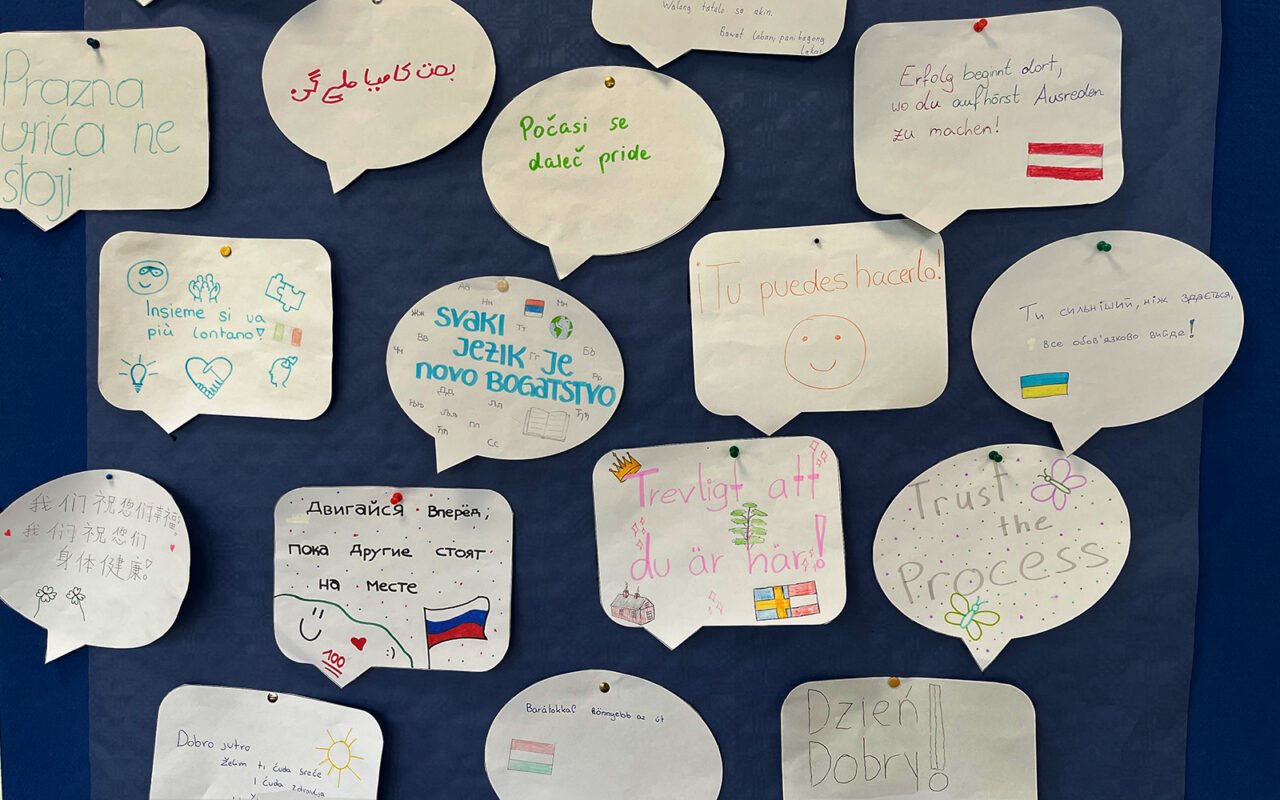 Walang tatalo sa akin.
Bawat laban, panibagong
lakas
Prazna
vrića ne
stoji
Počasi se
daleč pride
Erfolg beginnt dort,
wo du aufhörst Ausreden
zu machen!
Insieme si va
più lontano!
Аа
Нн
Мм
Жж
Вв
Тт
Чч
Гг
Бб
Рр
SVAKI
JEZIK JE
NOVO BOGATSTVO
Дд
Њњ
Љљ
Лл
Пп
Ћћ
Сс
Ђђ
¡Tu puedes hacerlo!
Ти сильніший, ніж здається,
все обов'язково вийде!
我们祝您们幸福!
我们祝您们
身体健康!
Двигайся вперёд,
пока другие стоят
на месте
100
:)
Trevligt att
du är här!
Trust
the
Process
Dobro jutro
želim ti čuda sreće
I čuda zdravlja
Barátokkal könnyebb az út
Dzień
Dobry!